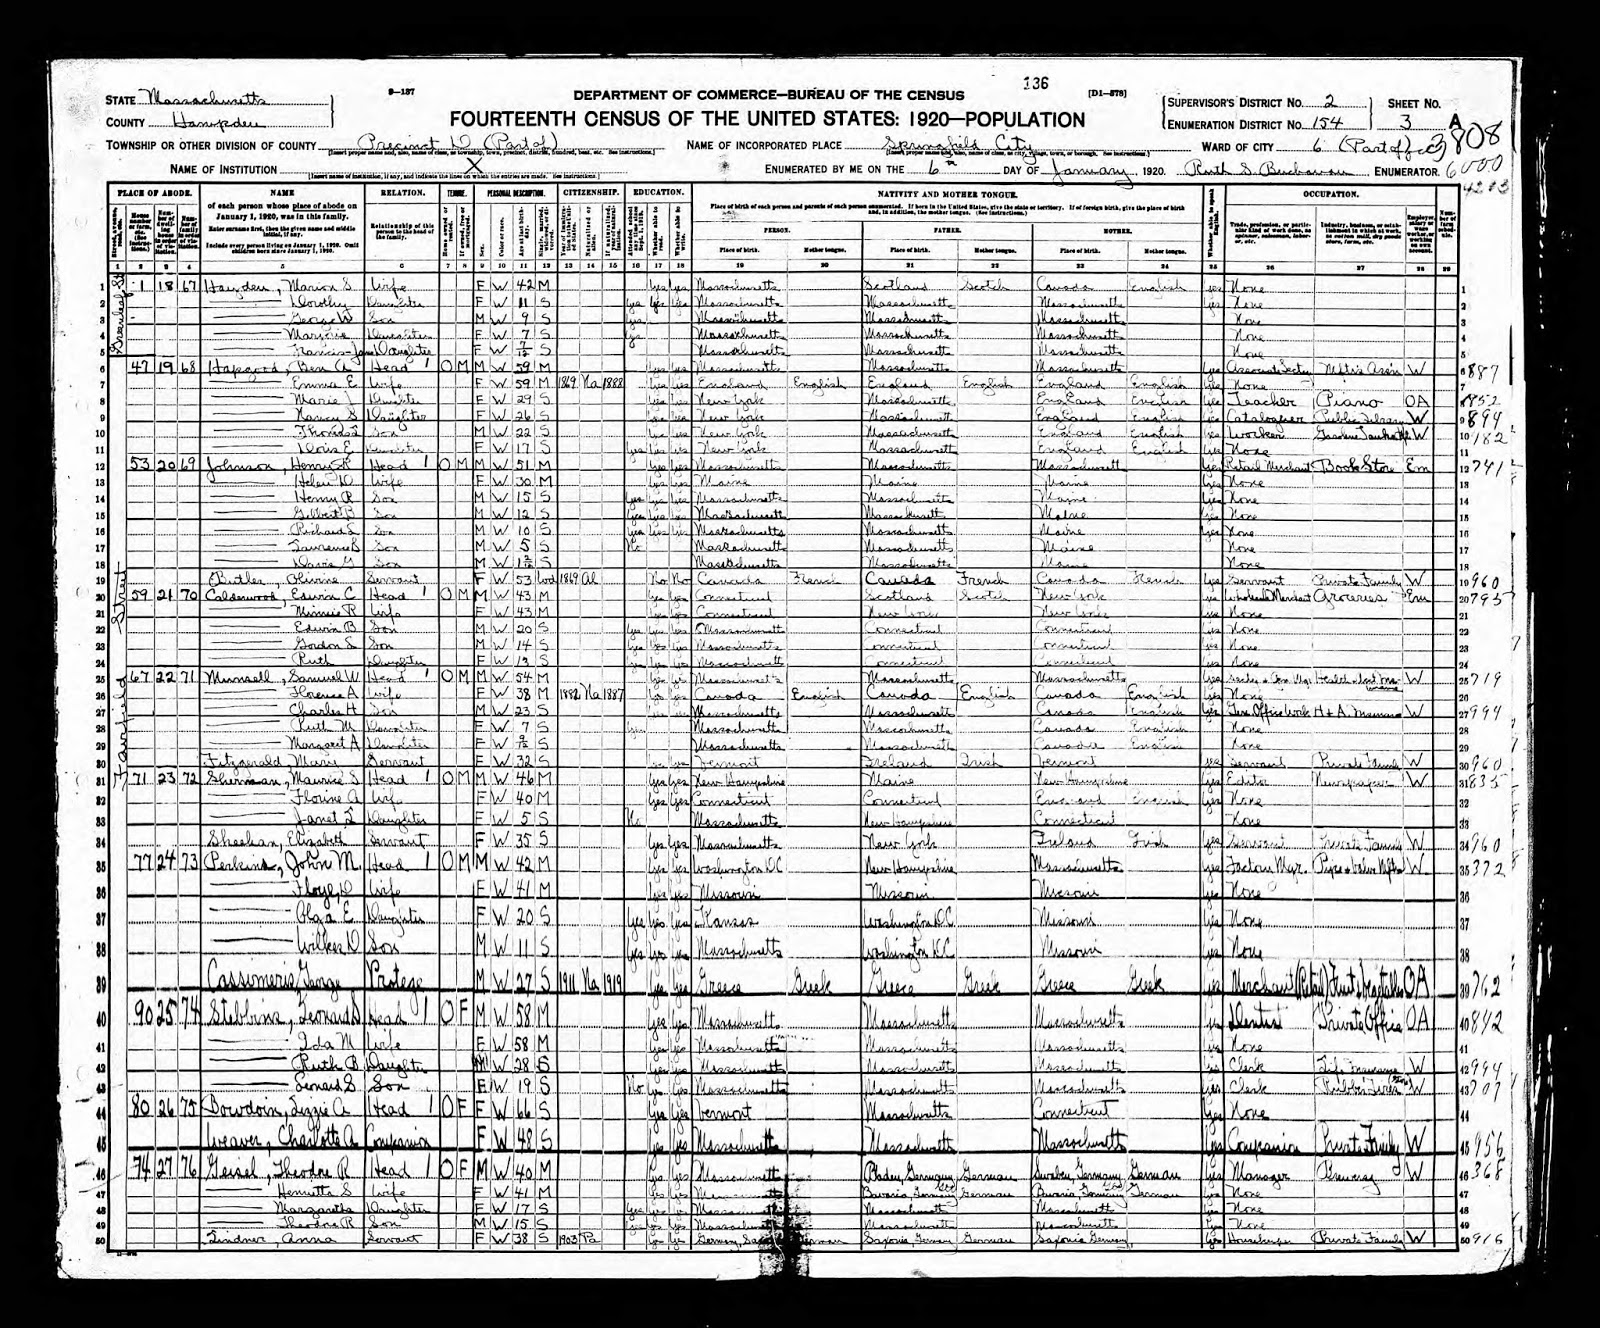 136
9—137
[D1—578]
DEPARTMENT OF COMMERCE—BUREAU OF THE CENSUS
FOURTEENTH CENSUS OF THE UNITED STATES: 1920—POPULATION
STATE Massachusetts
COUNTY Hampden
SUPERVISOR'S DISTRICT NO. 2
ENUMERATION DISTRICT NO. 154
SHEET NO.
3 A
TOWNSHIP OR OTHER DIVISION OF COUNTY Precinct D (Part of)
NAME OF INCORPORATED PLACE Springfield City
WARD OF CITY 6 (Part of)
NAME OF INSTITUTION X
ENUMERATED BY ME ON THE 6th DAY OF January, 1920. Ruth S. Buchanan ENUMERATOR.
PLACE OF ABODE. NAME RELATION. TENURE. PERSONAL DESCRIPTION. CITIZENSHIP. EDUCATION. NATIVITY AND MOTHER TONGUE. OCCUPATION.
of each person whose place of abode on January 1, 1920, was in this family.
Enter surname first, then the given name and middle initial, if any.
Include every person living on January 1, 1920. Omit children born since January 1, 1920.
Relationship of this person to the head of the family.
PERSON. FATHER. MOTHER.
Place of birth. Mother tongue. Place of birth. Mother tongue. Place of birth. Mother tongue.
1 2 3 4 5 6 7 8 9 10 11 12 13 14 15 16 17 18 19 20 21 22 23 24 25 26 27 28 29
1 1 18 67 Hayden, Marion S Wife F W 42 M Yes Yes Massachusetts Scotland Scotch Canada English Yes None
2 Dorothy Daughter F W 11 S Yes Yes Yes Massachusetts Massachusetts Massachusetts Yes None
3 George W Son M W 9 S Yes Massachusetts Massachusetts Massachusetts None
4 Marjorie Daughter F W 7 S Yes Massachusetts Massachusetts Massachusetts None
5 Daughter F W 7/12 S Massachusetts Massachusetts Massachusetts None
6 47 19 68 Hapgood, Ben A Head 1 O M M W 59 M Yes Yes Massachusetts Massachusetts Massachusetts Yes W 887
7 Emma E Wife F W 59 M 1869 Na 1888 Yes Yes England English England English England English Yes None
8 Marie J Daughter F W 29 S Yes Yes New York Massachusetts England English Yes Teacher Piano OA
9 Nancy S Daughter F W 26 S Yes Yes New York Massachusetts England English Yes Cataloguer Public Library W 894
10 Son M W 22 S Yes Yes New York Massachusetts England English Yes Worker W 182
11 Doris E Daughter F W 17 S Yes Yes Yes New York Massachusetts England English Yes None
12 53 20 69 Johnson, Henry R Head 1 O M M W 51 M Yes Yes Massachusetts Massachusetts Massachusetts Yes Retail Merchant Book Store Em 741
13 Helen D Wife F W 30 M Yes Yes Maine Maine Maine Yes None
14 Henry R Son M W 15 S Yes Yes Yes Massachusetts Massachusetts Maine Yes None
15 Gilbert B Son M W 12 S Yes Yes Yes Massachusetts Massachusetts Maine Yes None
16 Richard L Son M W 10 S Yes Yes Yes Massachusetts Massachusetts Maine Yes None
17 Lawrence Son M W 5 S No Massachusetts Massachusetts Maine None
18 Son M W S Massachusetts Massachusetts Maine None
19 Butler, Olivine Servant F W 53 Wd 1869 Al No No Canada French Canada French Canada French Yes Servant Private Family W 960
20 59 21 70 Calderwood, Edwin C Head 1 O M M W 43 M Yes Yes Connecticut Scotland Scotch New York Yes Wholesale Merchant Groceries Em 795
21 Minnie R Wife F W 43 M Yes Yes Connecticut New York New York Yes None
22 Edwin B Son M W 20 S Yes Yes Yes Massachusetts Connecticut Connecticut Yes None
23 Gordon S Son M W 14 S Yes Yes Yes Massachusetts Connecticut Connecticut Yes None
24 Ruth Daughter F W 13 S Yes Yes Yes Massachusetts Connecticut Connecticut Yes None
25 67 22 71 Munsell, Samuel W Head 1 O M M W 54 M Yes Yes Massachusetts Massachusetts Massachusetts Yes W 719
26 Florence A Wife F W 38 M 1882 Na 1887 Yes Yes Canada English Canada English Canada English Yes None
27 Charles H Son M W 23 S Yes Yes Massachusetts Massachusetts Canada English Yes W 994
28 Ruth M Daughter F W 7 S Yes Massachusetts Massachusetts Canada English None
29 Margaret A Daughter F W S Massachusetts Massachusetts Canada English None
30 Fitzgerald, Mary Servant F W 32 S Yes Yes Vermont Ireland Irish Vermont Yes Servant Private Family W 960
31 71 23 72 Sherman, Maurice S Head 1 O M M W 46 M Yes Yes New Hampshire Maine New Hampshire Yes Editor Newspaper W 835
32 Florine A Wife F W 40 M Yes Yes Connecticut Connecticut England English Yes None
33 Janet L Daughter F W 5 S No Massachusetts New Hampshire Connecticut None
34 Sheehan, Elizabeth Servant F W 35 S Yes Yes Massachusetts New York Ireland Irish Yes Servant Private Family W 960
35 77 24 73 Perkins, John M. Head 1 O M M W 42 M Yes Yes Washington D.C New Hampshire Massachusetts Yes Factory Mgr. Pipe & Valve Mftrs W 372
36 Floyd D Wife F W 41 M Yes Yes Missouri Missouri Missouri Yes None
37 Olga E Daughter F W 20 S Yes Yes Yes Kansas Washington D.C Missouri Yes None
38 Wilkes D Son M W 11 S Yes Yes Yes Massachusetts Washington D.C Missouri Yes None
39 Cassimeris, George Protege M W 27 S 1911 Na 1919 Yes Yes Greece Greek Greece Greek Greece Greek Yes Merchant (Retail) Fruit & Vegetables OA 762
40 90 25 74 Stebbins, Leonard S Head 1 O F M W 58 M Yes Yes Massachusetts Massachusetts Massachusetts Yes Dentist Private Office OA 842
41 Ida M Wife F W 58 M Yes Yes Massachusetts Massachusetts Massachusetts Yes None
42 Ruth B Daughter W 28 S Yes Yes Massachusetts Massachusetts Massachusetts Yes Clerk Life Insurance W 994
43 Leonard S Son W 19 S No Yes Yes Massachusetts Massachusetts Massachusetts Yes Clerk W 707
44 80 26 75 Bowdoin, Lizzie A Head 1 O F F W 66 S Yes Yes Vermont Massachusetts Connecticut Yes None
45 Weaver, Charlotte A Companion F W 48 S Yes Yes Massachusetts Massachusetts Massachusetts Yes Companion Private Family W 956
46 74 27 76 Geisel, Theodore R Head 1 O F M W 40 M Yes Yes Massachusetts Baden, Germany German Germany German Yes Manager Brewery W 368
47 Henrietta S Wife F W 41 M Yes Yes Bavaria, Germany German Bavaria, Germany German Yes None
48 Margaretha Daughter F W 17 S Yes Yes Yes Massachusetts Massachusetts Massachusetts Yes None
49 Theodore R Son M W 15 S Yes Yes Yes Massachusetts Massachusetts Massachusetts Yes None
50 Lindner, Anna Servant F W 38 S 1903 Pa Yes Yes German Saxonia, Germany German Saxonia Germany Yes Housekeeper Private Family W
Greenleaf St
Fairfield Street